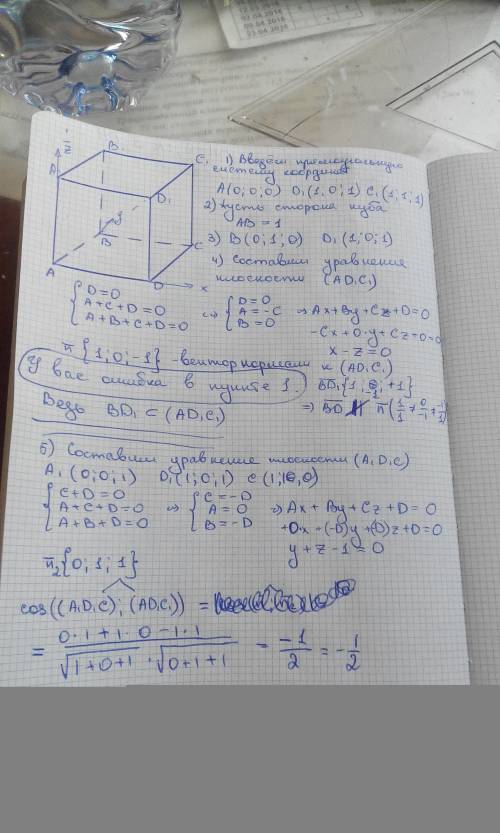 1) Введём прямоугольную
систему координат
A(0;0;0) D₁(1;0;1) C₁(1;1;1)
2) Пусть сторона куба
AB = 1
3) B(0;1;0) D₁(1;0;1)
4) Составим уравнение
плоскости (AD₁C₁)
z
A₁
B₁
C₁
D₁
y
B
C
A
D
x
{ D=0
A+C+D=0
A+B+C+D=0
⇔ { D=0
A=-C
B=0
⇒ Ax+By+Cz+D=0
-Cx+0·y+Cz+0=0
x-z=0
n{1;0;-1} - вектор нормали к (AD₁C₁)
У вас ошибка в пункте 1.
Ведь BD₁ ⊂ (AD₁C₁)
5) Составим уравнение плоскости (A₁D₁C)
A₁(0;0;1) D₁(1;0;1) C(1;1;0)
{ C+D=0
A+C+D=0
A+B+D=0
⇒ { C=-D
A=0
B=-D
⇒ Ax+By+Cz+D=0
+0·x+(-D)y+(-D)z+D=0
y+z-1=0
n₂{0;1;1}
cos((A₁D₁C);(AD₁C₁)) =
= (0·1+1·0-1·1)/(√(1+0+1)·√(0+1+1)) = -1/2 = -1/2